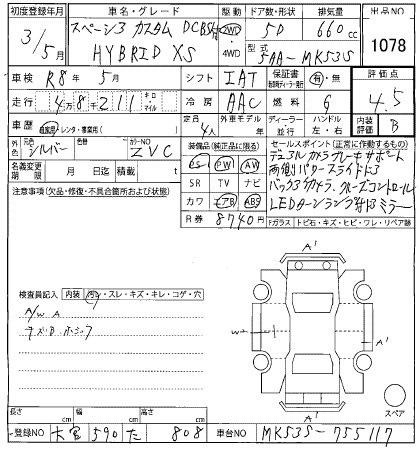 初度登録年月 車名・グレード 駆動 ドア数・形状 排気量 出品NO
3/5月 スペーシア カスタム DCBS付 2WD 5D 660cc 1078
HYBRID XS 4WD 型式 5AA-MK53S
車検 R8年 5月 シフト IAT 保証書 有・無 評価点
走行 4万8千211 キロ・マイル 冷房 AAC 燃料 G 4.5
車歴 自家用・レンタ・事業用( ) 定員 4人 外車モデル年 年 ディーラー 並行 ハンドル 左・右 内装評価 B
外色 元色 シルバー カラーNO ZVC 装備品(純正品に限る) セールスポイント(正常に作動するもの)
名義変更期限 月 日迄 積載量 t PS PW AW デュアルカメラブレーキサポート
注意事項(欠品・修復・不具合箇所及び状態) SR TV ナビ 両側パワースライドドア
カワ エアB ABS バックカメラ、クルーズコントロール
R券 8740円 LEDターンランプ付ドアミラー
Fガラス トビ石・キズ・ヒビ・ワレ・リペア跡
検査員記入 内装 汚レ・スレ・キズ・キレ・コゲ・穴
A/W A
A'
W
A'
A'
スペア
長さ cm 幅 cm 高さ cm
登録NO 大宮 590 た 808 車台NO MK53S-755117